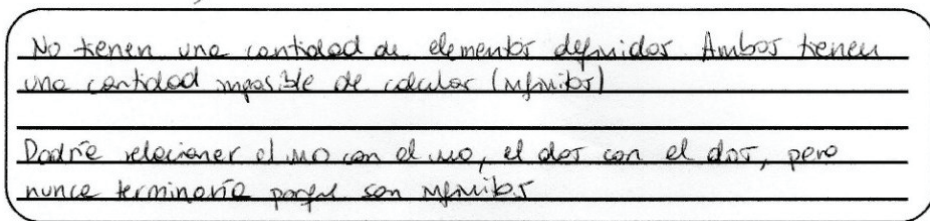 No tienen una cantidad de elementos definidos. Ambos tienen
una cantidad imposible de calcular (infinitos)
Podría relacionar el uno con el uno, el dos con el dos, pero
nunca terminaría porque son infinitos